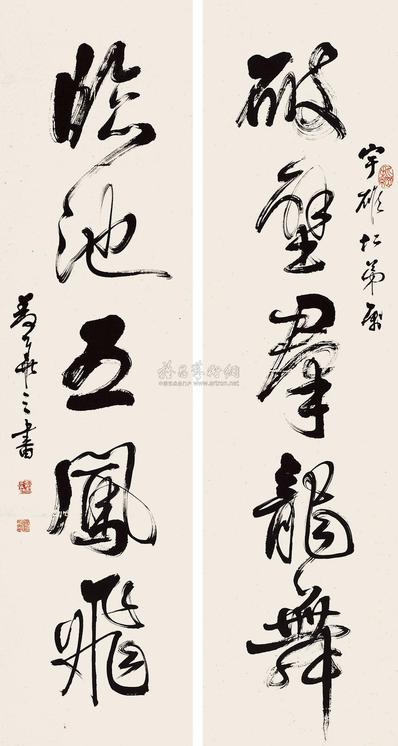 宇雄仁弟屬
破壁羣龍舞
臨池五鳳飛
書
雅昌藝術網
www.artron.net